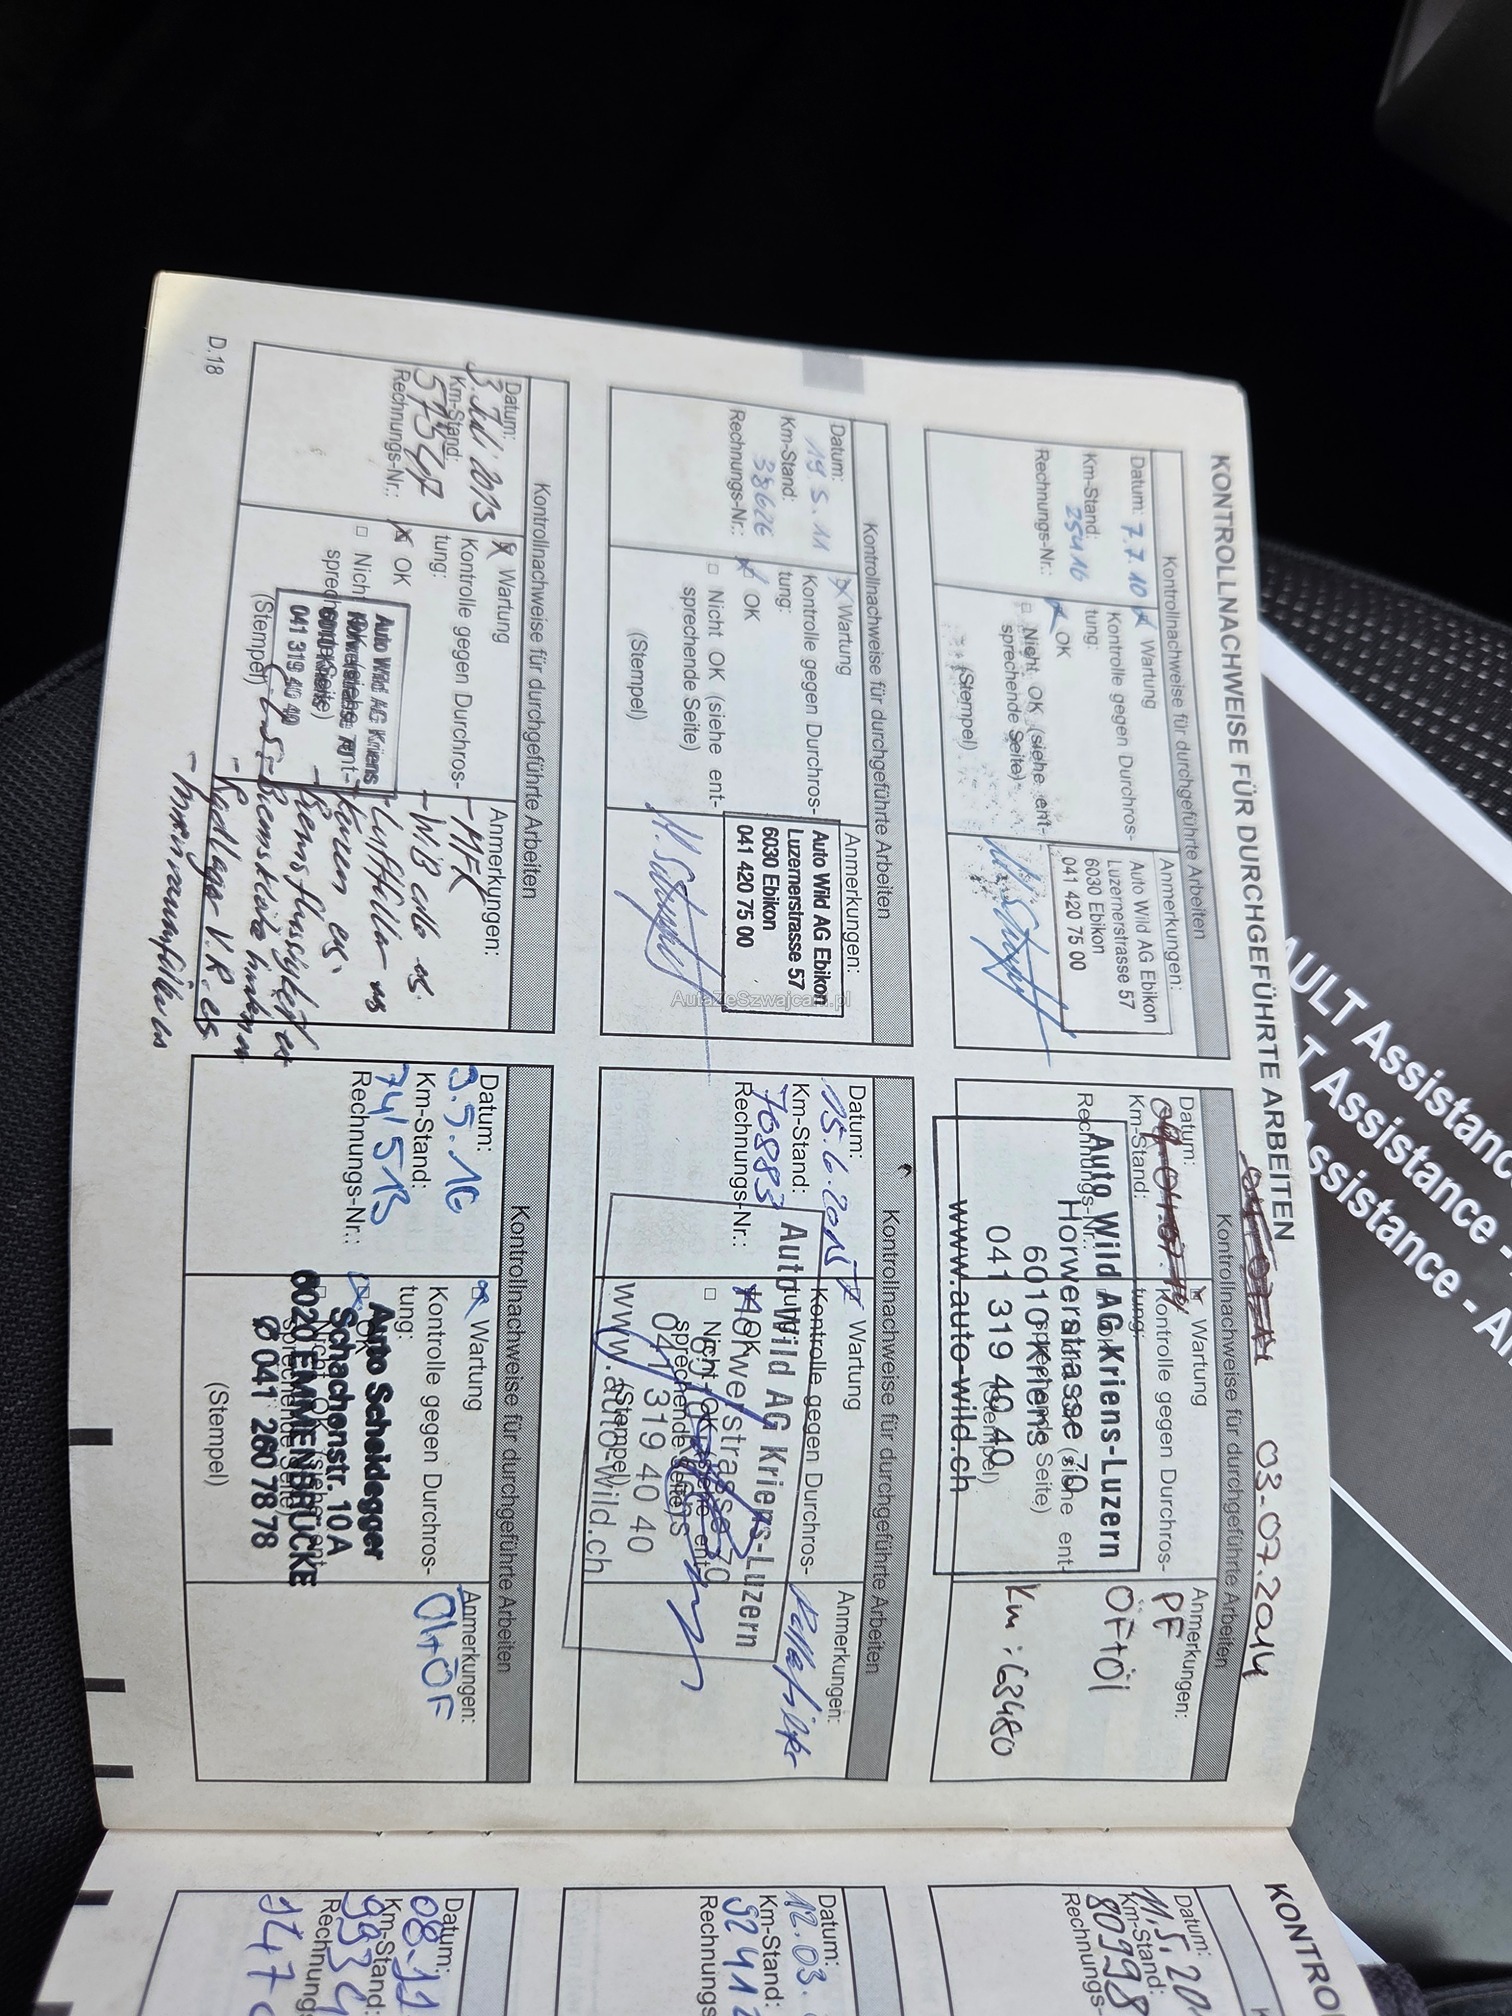 KONTROLLNACHWEISE FÜR DURCHGEFÜHRTE ARBEITEN
03-07.2014
Kontrollnachweise für durchgeführte Arbeiten
Datum: 7.7.10
Km-Stand:
25416
Rechnungs-Nr.:
Wartung
Kontrolle gegen Durchros-
tung:
OK
Nicht OK (siehe ent-
sprechende Seite)
(Stempel)
Anmerkungen:
Auto Wild AG Ebikon
Luzernerstrasse 57
6030 Ebikon
041 420 75 00
Kontrollnachweise für durchgeführte Arbeiten
Datum:
19.5.11
Km-Stand:
38626
Rechnungs-Nr.:
Wartung
Kontrolle gegen Durchros-
tung:
OK
Nicht OK (siehe ent-
sprechende Seite)
(Stempel)
Anmerkungen:
Auto Wild AG Ebikon
Luzernerstrasse 57
6030 Ebikon
041 420 75 00
Kontrollnachweise für durchgeführte Arbeiten
Datum:
3. Juli 2013
Km-Stand:
57547
Rechnungs-Nr.:
Wartung
Kontrolle gegen Durchros-
tung:
OK
Nicht
(Stempel)
Auto Wild AG Kriens
041 319 40 40
Anmerkungen:
- MFK
- Luftfilter
D.18
Kontrollnachweise für durchgeführte Arbeiten
Datum:
Km-Stand:
Rechnungs-Nr.:
Wartung
Kontrolle gegen Durchros-
tung:
Auto Wild AG Kriens-Luzern
Horwerstrasse 70
6010 Kriens
041 319 40 40
www.auto-wild.ch
Anmerkungen:
PF
ÖF+Öl
Km: 63480
Kontrollnachweise für durchgeführte Arbeiten
Datum:
15.6.2015
Km-Stand:
70883
Rechnungs-Nr.:
Wartung
Kontrolle gegen Durchros-
tung:
OK
Nicht OK (siehe ent-
sprechende Seite)
(Stempel)
Auto Wild AG Kriens-Luzern
Horwerstrasse 70
041 319 40 40
www.auto-wild.ch
Anmerkungen:
Pollenfilter
Kontrollnachweise für durchgeführte Arbeiten
Datum:
3.5.16
Km-Stand:
74513
Rechnungs-Nr.:
Wartung
Kontrolle gegen Durchros-
tung:
(Stempel)
Auto Scheidegger
Schachenstr. 10A
6020 EMMENBRÜCKE
041 260 78 78
Anmerkungen:
Öl+ÖF
KONTRO
Datum:
11.5.20
Km-Stand:
80998
Rechnungs-
Datum:
12.03.
Km-Stand:
92412
Rechnungs
Datum:
08.11
Km-Stand:
9934
Rechnung
AULT Assistance -
T Assistance -
Assistance - A
AutaZeSzwajcarii.pl